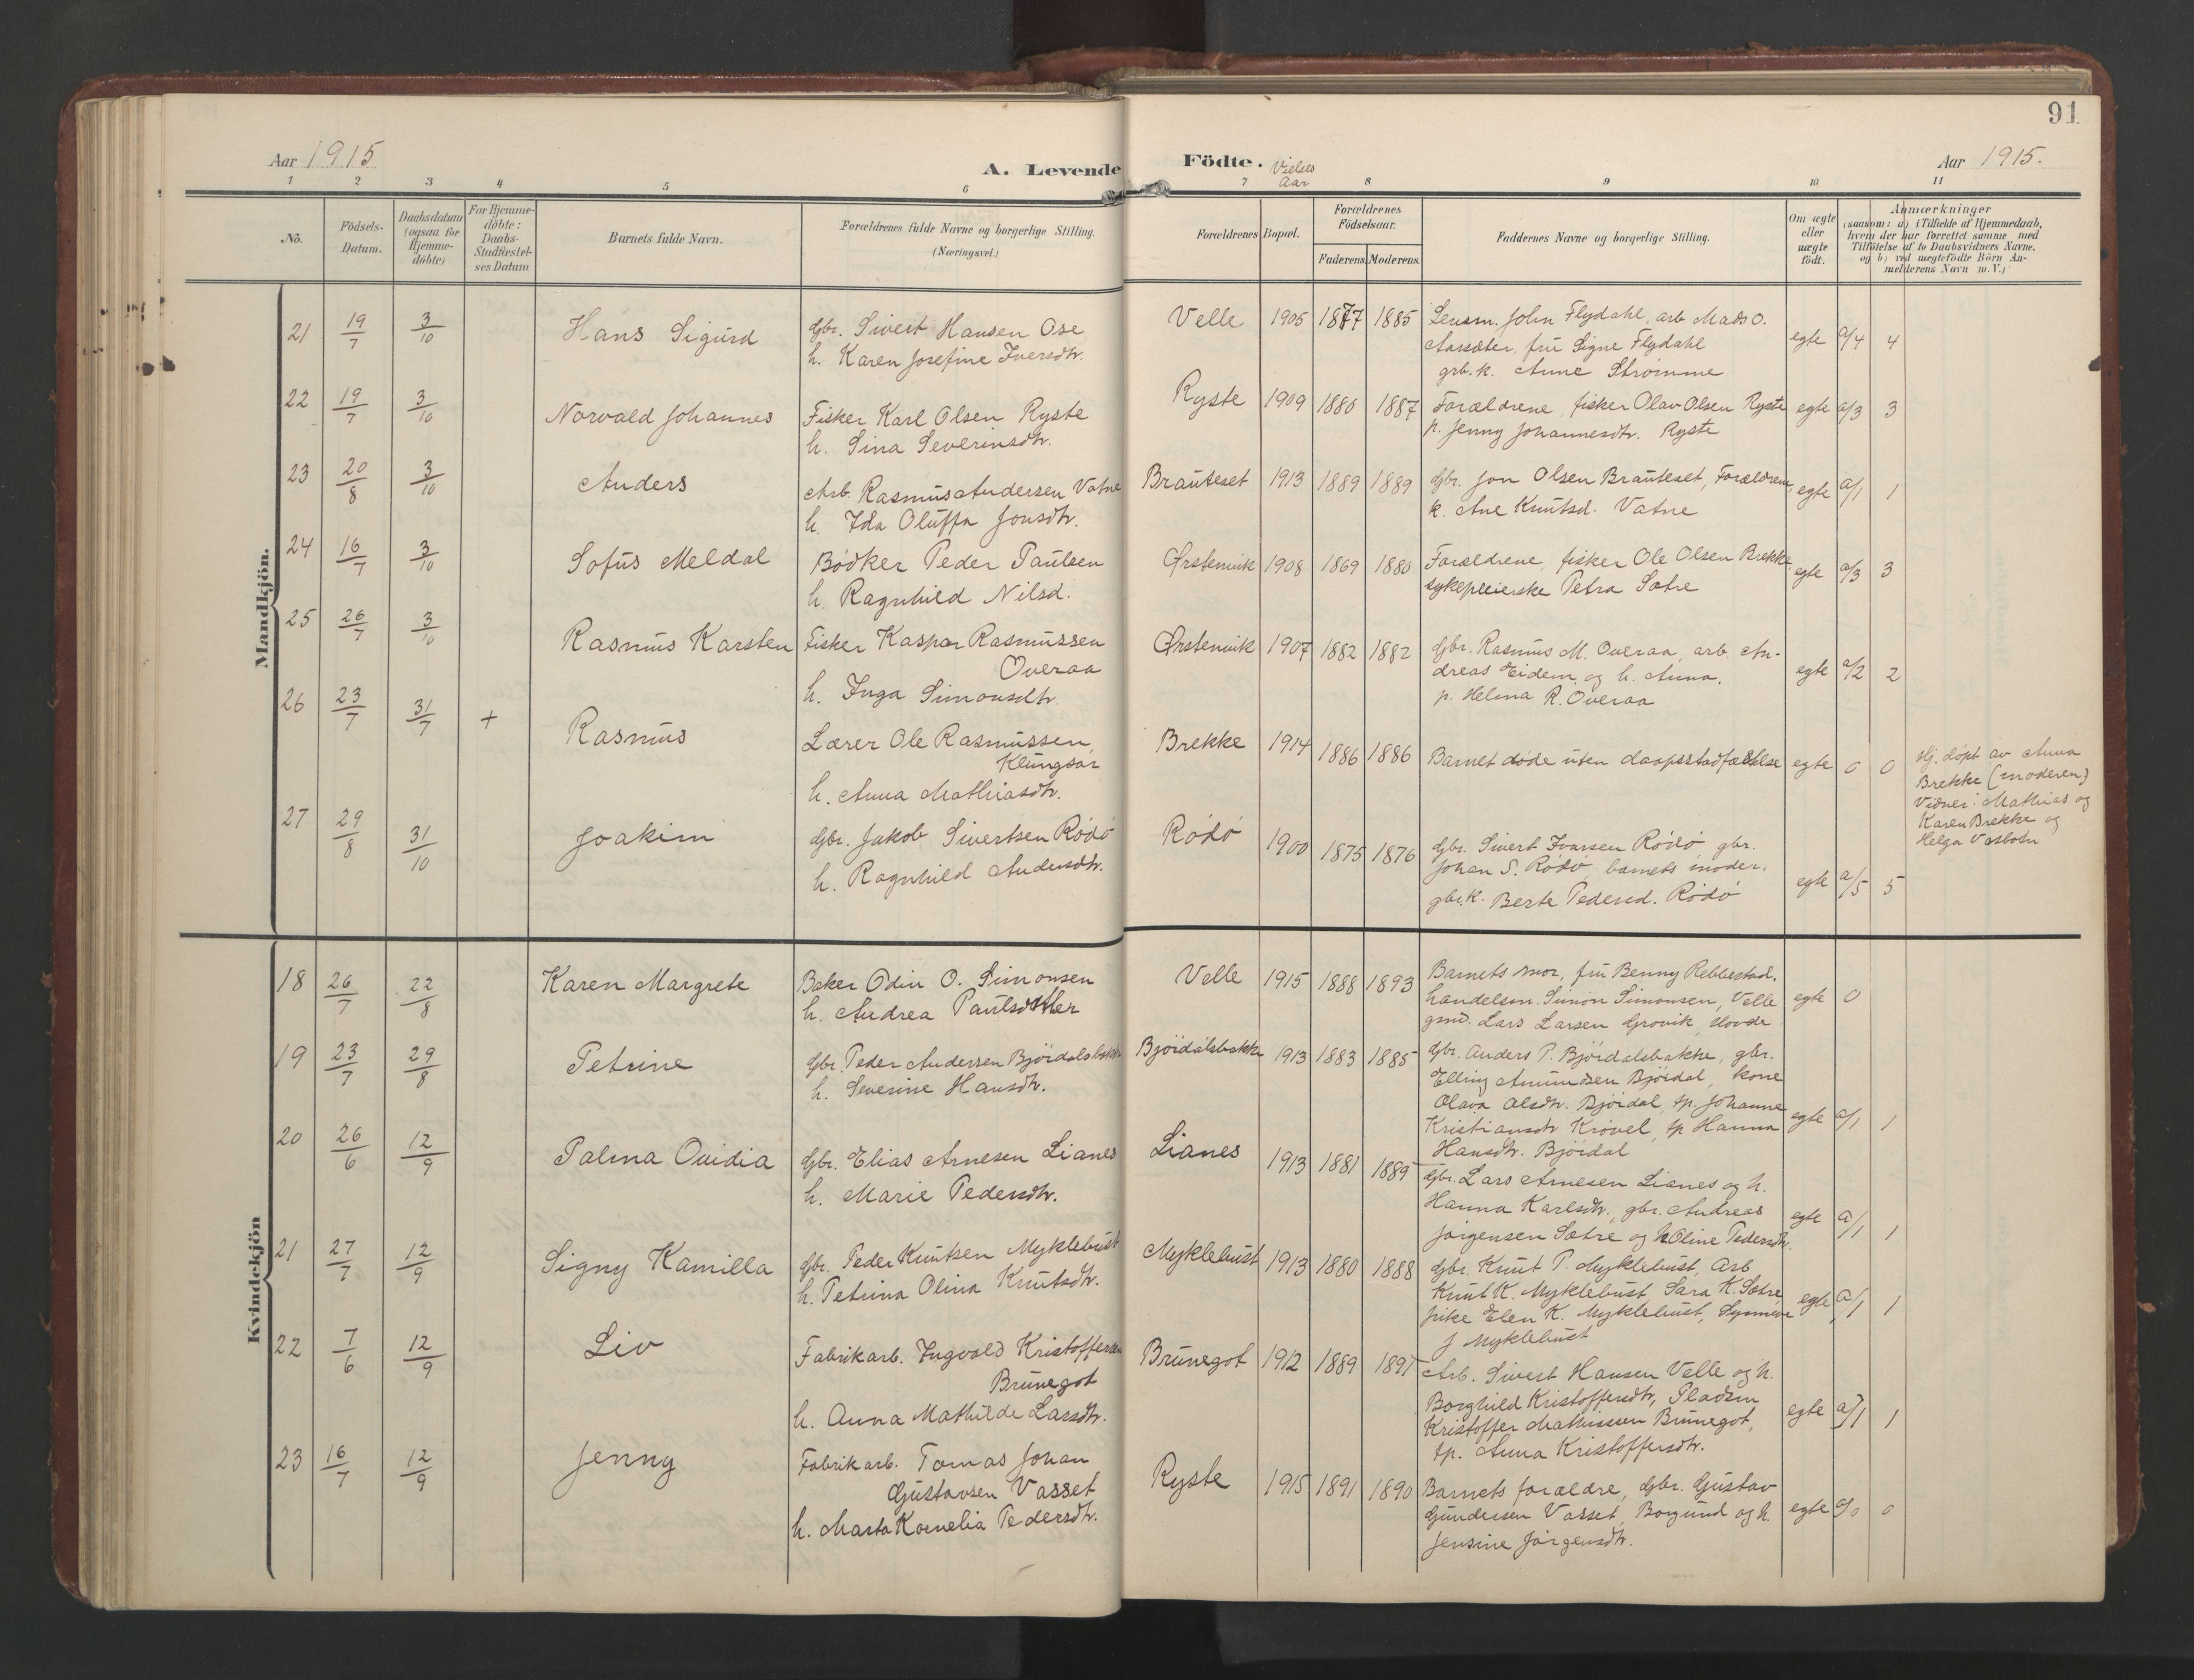 91
Aar 1915
A. Levende Födte.
Vielses Aar
Aar 1915.
1 2 3 4 5 6 7 8 9 10 11
No.
Födsels-Datum.
Daabsdatum (ogsaa for Hjemme-döbte)
For Hjemme-döbte: Daabs-Stadfæstel-ses Datum
Barnets fulde Navn.
Forældrenes fulde Navne og borgerlige Stilling.
(Næringsvei.)
Forældrenes Bopæl.
Forældrenes Födselsaar.
Faderens. Moderens.
Faddernes Navne og borgerlige Stilling.
Om ægte eller uægte födt.
Anmærkninger
(saasom: a) i Tilfælde af Hjemmedaab,
hvem der har forrettet samme med
Tilföielse af to Daabsvidners Navne,
og b) ved uægtefödte Börn An-
melderens Navn m. V.)
Mandkjön.
21 19/7 3/10 Hans Sigurd Gbr. Sivert Hansen Ose Velle 1905 1877 1885 Lensm. John Flydahl, arb Mads O.
h. Karen Josefine Iversdtr. Aarsæter, fru Signe Flydahl egte a/4 4
grb. k. Anne Strømme
22 19/7 3/10 Norvald Johannes Fisker Karl Olsen Ryste Ryste 1909 1880 1887 Forældrene, fisker Olav Olsen Ryste egte a/3 3
h. Sina Severinsdtr. p. Jenny Johannesdtr. Ryste
23 20/8 3/10 Anders Arb. Rasmus Andersen Vatne Brauteset 1913 1889 1889 Gbr. Jon Olsen Brauteset, Forældrene, egte a/1 1
h. Ida Oluffa Jonsdtr. k. Ane Knutsd. Vatne
24 16/7 3/10 Sofus Meldal Bødker Peder Paulsen Ørstenvik 1908 1869 1880 Forældrene, fisker Ole Olsen Brekke, egte a/3 3
h. Ragnhild Nilsd. sykepleierske Petra Sætre
25 26/7 3/10 Rasmus Karsten Fisker Kaspar Rasmussen Ørstenvik 1907 1882 1882 Gbr. Rasmus M. Overaa, arb. An-
Overaa dreas Eidem og h. Anna, egte a/2 2
h. Inga Simonsdtr. p. Helma R. Overaa
26 23/7 31/7 + Rasmus Lærer Ole Rasmussen, Brekke 1914 1886 1886 Barnet døde uten daapsstadfæstelse egte 0 0
Klungsør
h. Anna Mathiasdtr.
Hj. døpt av Anna
Brekke (moderen)
Vidner: Mathias og
Karen Brekke og
Helga Vasbotn
27 29/8 31/10 Joakim Gbr. Jakob Sivertsen Rödö Rödö 1900 1875 1876 Gbr. Sivert Ivarsen Rödö, gbr.
h. Ragnhild Andersdtr. Johan S. Rödö, barnets moder,
gbr.k. Berte Pedersd. Rödö egte a/5 5
Kvindekjön
18 26/7 22/8 Karen Margrete Baker Odin O. Simonsen Velle 1915 1888 1893 Barnets mor, fru Benny Rebbestad,
h. Andrea Paulsdtter handelsm. Simon Simonsen, Velle egte 0
gmd. Lars Larsen Grovik, Hovde
19 23/7 29/8 Petrine Gbr. Peder Andersen Björdalsbakke Björdalsbakke 1913 1883 1885 Gbr. Anders P. Björdalsbakke, gbr.
h. Severine Hansdtr. Elling Amundsen Björdal, kone
Olava Olsdtr. Björdal, tp. Johanne
Kristiansdtr Krövel, tp Hanna egte a/1 1
Hansdtr. Björdal
20 26/6 12/9 Palma Ovidia Gbr. Elias Arnesen Lianes Lianes 1913 1881 1889 Gbr. Lars Arnesen Lianes og h.
h. Marie Pedersdtr. Hanna Karlsdtr., gbr. Andreas egte a/1 1
Jørgensen Sætre og h Oline Pedersdtr.
21 27/7 12/9 Signy Kamilla Gbr. Peder Knutsen Myklebust Myklebust 1913 1880 1888 Gbr. Knut P. Myklebust, Arb
h. Petrina Olina Knutsdtr. Knut K. Myklebust, Sara K. Sætre,
pike Elen K. Myklebust, Synnøve egte a/1 1
J Myklebust
22 7/6 12/9 Liv Fabrikarb. Ingvald Kristoffersen Brunegot 1912 1889 1891 Arb. Sivert Hansen Velle og h.
Brunegot Borghild Kristoffersdtr, Pladsm
h. Anna Mathilde Larsdtr. Kristoffer Mathissen Brunegot, egte a/1 1
tp. Anna Kristoffersdtr.
23 16/7 12/9 Jenny Fabrikarb. Tomas Johan Ryste 1915 1891 1890 Barnets forældre, Gbr. Gustav
Gustavsen Vasset Gundersen Vasset, Borgund og h. egte a/0 0
h. Marta Kornelia Pedersdtr. Jensine Jørgensdtr.